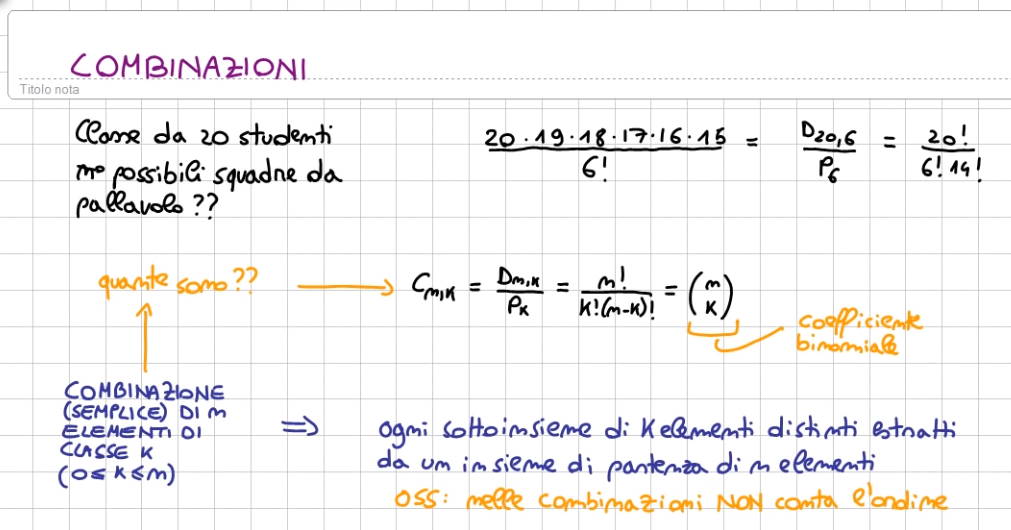 COMBINAZIONI
Titolo nota
Classe da 20 studenti
n° possibili squadre da
pallavolo ??
20 · 19 · 18 · 17 · 16 · 15 / 6! = D20,6 / P6 = 20! / 6! 14!
quante sono ??
Cn,k = Dn,k / Pk = n! / k!(n-k)! = (n k)
coefficiente
binomiale
COMBINAZIONE
(SEMPLICE) DI n
ELEMENTI DI
CLASSE K
(0 ≤ K ≤ n)
⇒ ogni sottoinsieme di K elementi distinti estratti
da un insieme di partenza di n elementi
OSS: nelle combinazioni NON conta l'ordine